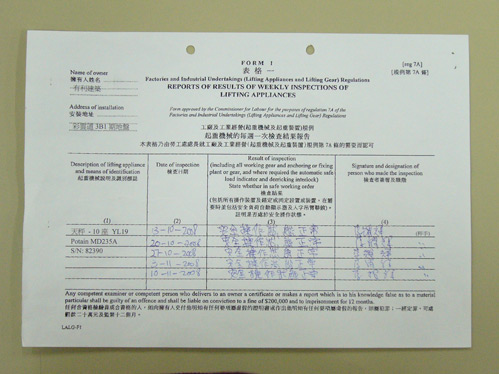 FORM 1
表格一
[reg 7A]
[規例第 7A 條]
Name of owner
擁有人姓名
有利建築
Factories and Industrial Undertakings (Lifting Appliances and Lifting Gear) Regulations
REPORTS OF RESULTS OF WEEKLY INSPECTIONS OF
LIFTING APPLIANCES
Address of installation
安裝地址
彩雲道 3B1 期地盤
Form approved by the Commissioner for Labour for the purposes of regulation 7A of the
Factories and Industrial Undertakings (Lifting Appliances and Lifting Gear) Regulations
工廠及工業經營(起重機械及起重裝置)規例
起重機械的每週一次檢查結果報告
本表格乃由勞工處處長就工廠及工業經營(起重機械及起重裝置)規例第 7A 條的需要而認可
Description of lifting appliance
and means of identification
起重機械說明及識別標誌
Date of inspection
檢查日期
Result of inspection
(including all working gear and anchoring or fixing
plant or gear, and where required the automatic safe
load indicator and derricking interlock)
State whether in safe working order
檢查結果
Signature and designation of
person who made the inspection
(1)
(2)
(3)
(4)
天秤 - 10 座 YL19
13-10-2008
安全操作狀態正常
Potain MD235A
20-10-2008
安全操作狀態正常
S/N: 82390
27-10-2008
安全操作狀態正常
3-11-2008
安全操作狀態正常
10-11-2008
安全操作狀態正常
Any competent examiner or competent person who delivers to an owner a certificate or makes a report which is to his knowledge false as to a material
particular shall be guilty of an offence and shall be liable on conviction to a fine of $200,000 and to imprisonment for 12 months.
罰款二十萬元及監禁十二個月。
LALG-F1